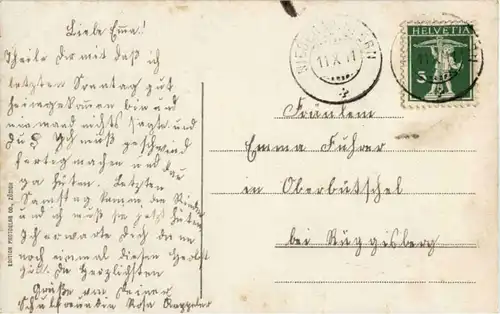 Liebe Emma!
Theile Dir mit daß ich
letzten Sonntag gut
heimgekommen bin und
niemand nichts sagte und
Du? Ich muß geschwind
fertig machen und
ga hüten. Letzten
Samstag kamen die Rinder
und ich muß sie jetzt hüten
Ich erwarte Dich denn
noch einmal diesen Herbst
Die Herzlichsten
Grüße von Deiner
Schulfreundin Rosa
EDITION PHOTOGLOB CO., ZÜRICH
11 X 11
HELVETIA
5
Fräulein
Emma Fuhrer
in Oberbütschel
bei Rüggisberg